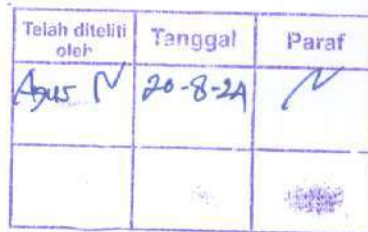 Telah diteliti oleh Tanggal Paraf
Agus N 20-8-24